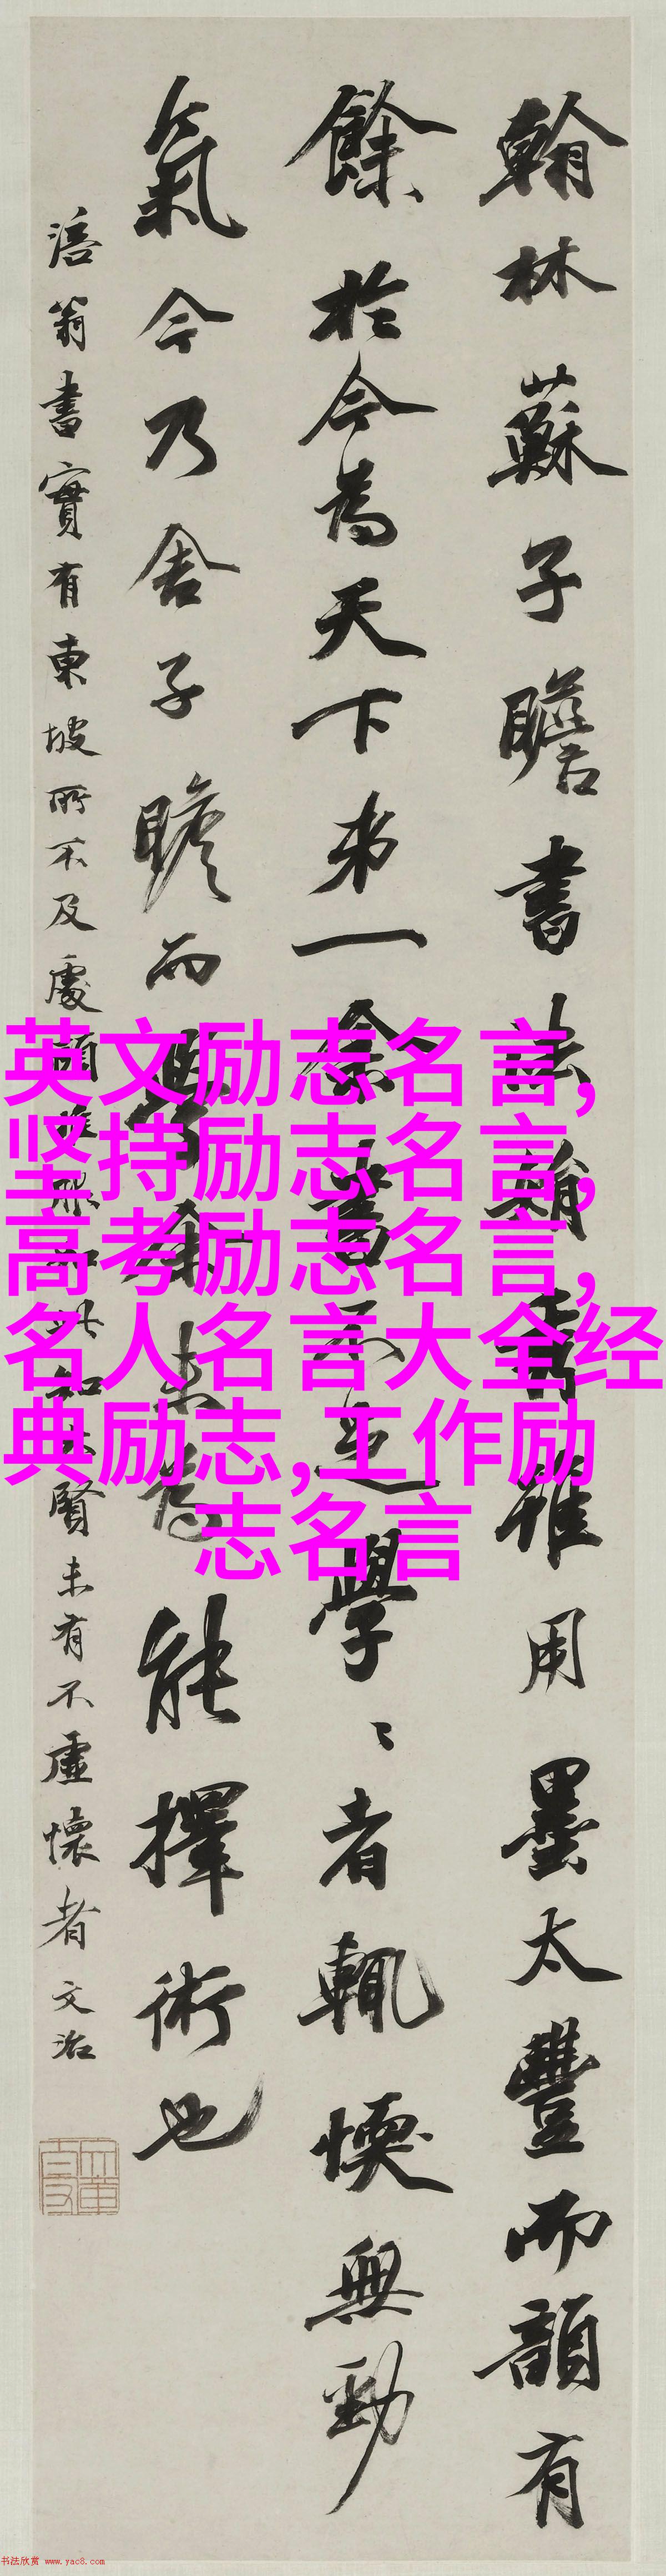 翰林蘇子瞻書法娟秀雖用墨太豐而韻有
餘於今為天下第一余書不足學學者輒愞無勁
氣今乃舍子瞻而學余未為能擇術也
涪翁書實有東坡所不及處
賢未有不虛懷者文治
英文励志名言,
坚持励志名言,
高考励志名言,
名人名言大全经
典励志,工作励
志名言
书法欣赏 www.yac8.com